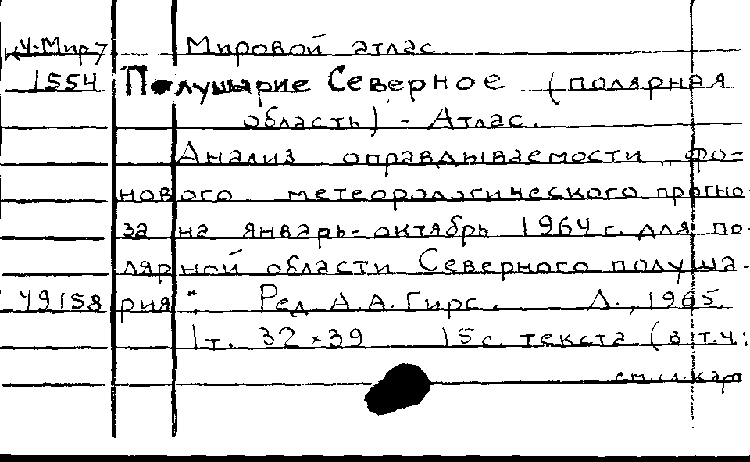 Ач:Мир7 Мировой атлас
1554 Полушарие Северное (полярная
область) - Атлас.
"Анализ оправдываемости фо-
нового метеорологического прогно
за на январь-октябрь 1964 г. для по-
лярной области Северного полуша-
49158 рия". Ред А.А.Гирс. Л., 1965
1т. 32×39 15с. текста (в т.ч.:
см.л.карт